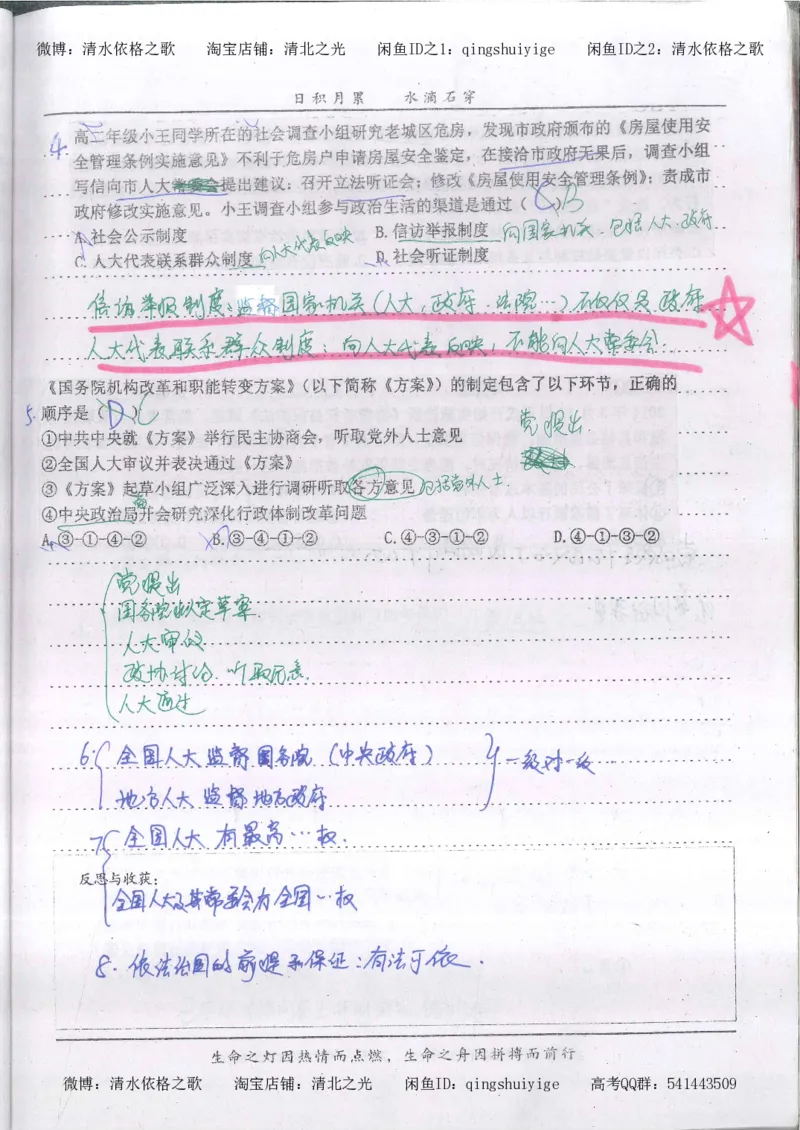 微博：清水依格之歌 淘宝店铺：清北之光 闲鱼ID之1：qingshuiyige 闲鱼ID之2：清水依格之歌
日积月累 水滴石穿
4. 高二年级小王同学所在的社会调查小组研究老城区危房，发现市政府颁布的《房屋使用安
全管理条例实施意见》不利于危房户申请房屋安全鉴定，在接洽市政府无果后，调查小组
写信向市人大常委会提出建议：召开立法听证会；修改《房屋使用安全管理条例》；责成市
政府修改实施意见。小王调查小组参与政治生活的渠道是通过（ C ）B
A. 社会公示制度 B. 信访举报制度 向国家机关，包括人大、政府
C. 人大代表联系群众制度 向人大代表反映 D. 社会听证制度
信访举报制度：监督国家机关（人大，政府、法院…）不仅仅是政府
人大代表联系群众制度：向人大代表反映，不能向人大常委会.
《国务院机构改革和职能转变方案》（以下简称《方案》）的制定包含了以下环节，正确的
5. 顺序是（ D ）C
党提出
①中共中央就《方案》举行民主协商会，听取党外人士意见
②全国人大审议并表决通过《方案》
③《方案》起草小组广泛深入进行调研听取各方意见 包括党外人士.
④中央政治局开会研究深化行政体制改革问题
A. ③-①-④-② B. ③-④-①-② C. ④-③-①-② D. ④-①-③-②
党提出
国务院拟定草案
人大审议
政协讨论 听取意见.
人大通过
6. 全国人大 监督 国务院（中央政府）
一级对一级
地方人大 监督 地方政府
7 全国人大 有最高…权.
反思与收获：
全国人大及其常委会为全国…权
8. 依法治国的前提和保证：有法可依.
生命之灯因热情而点燃，生命之舟因拼搏而前行
微博：清水依格之歌 淘宝店铺：清北之光 闲鱼ID：qingshuiyige 高考QQ群：541443509